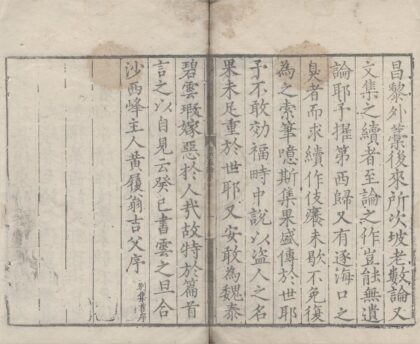 昌黎外藁後來所次坡老數論又
文集之續者至論之作豈能無遺
論耶予擢第西歸又有逐海口之
臭者而求續作伎癢未歇不免復
為之索筆噫斯集果盛傳於世耶
予不敢効福時中說以盜人之名
果未足重於世耶又安敢為魏泰
碧雲瑕嫁惡於人哉故特於篇首
言之以自見云癸巳書雲之旦合
沙西峰主人黃履翁吉父序